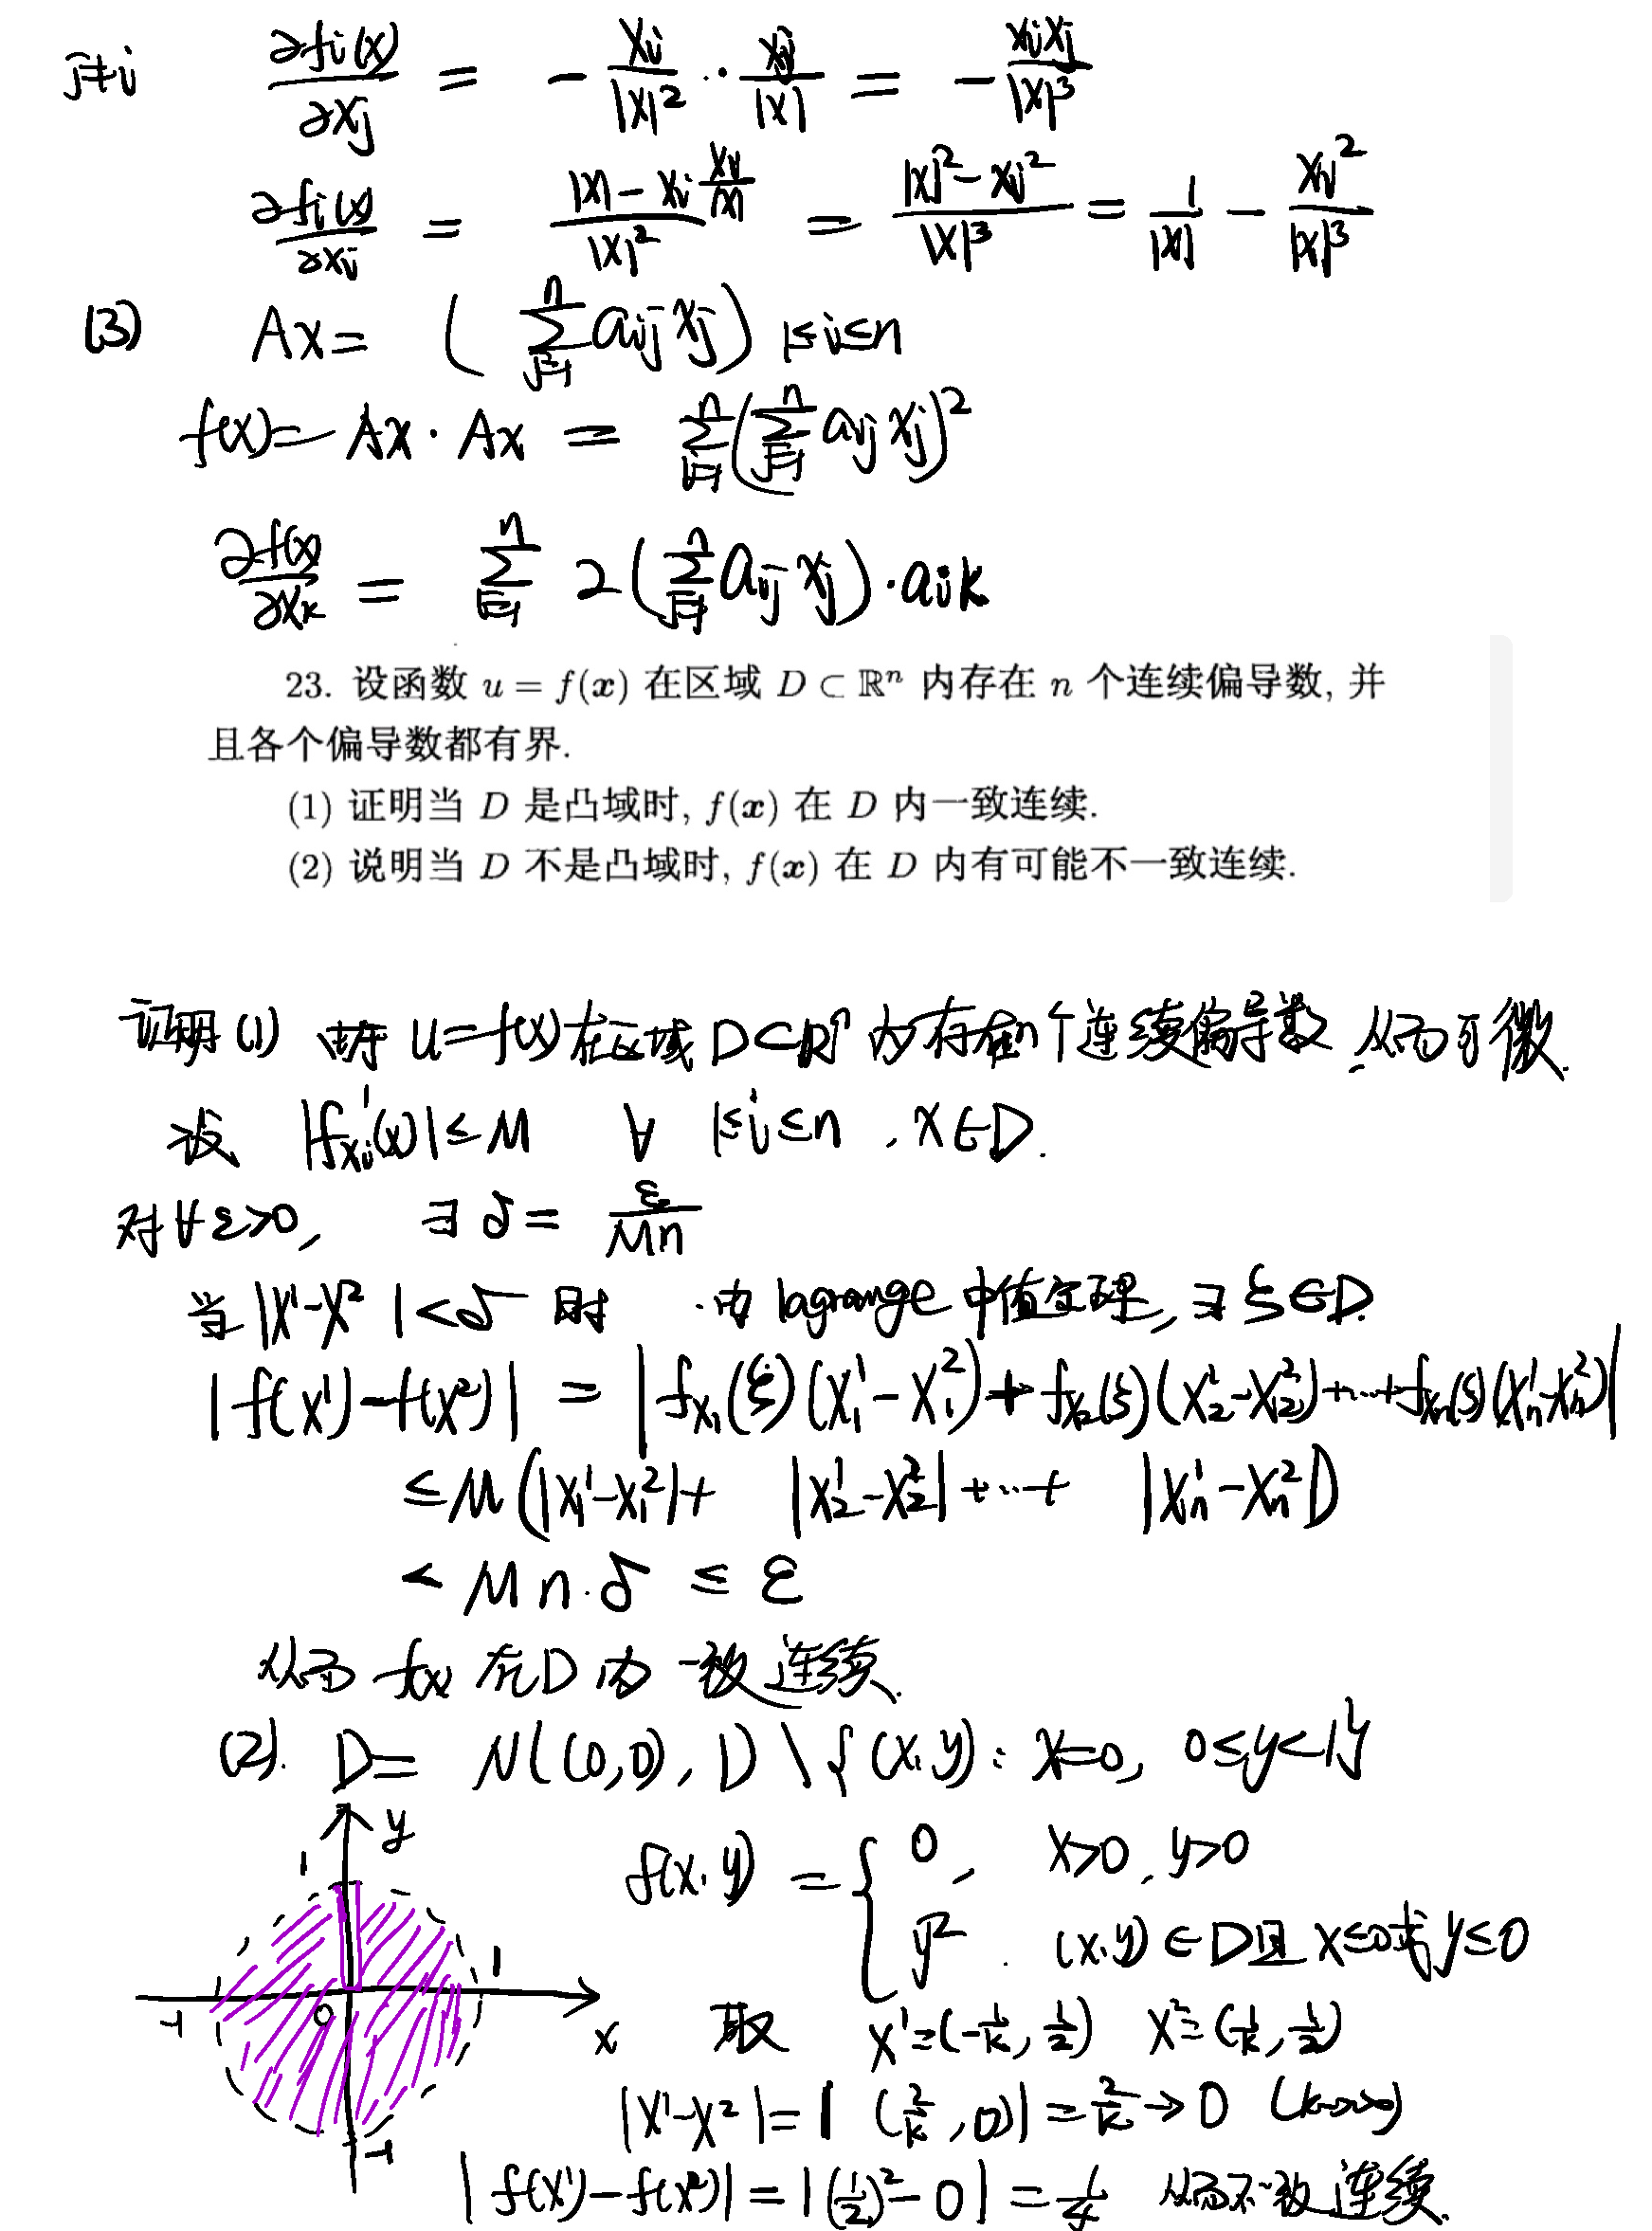 j≠i ∂fi(x)/∂xj = - xi/|x|² · xj/|x| = - xixj/|x|³
∂fi(x)/∂xi = (|x| - xi xi/|x|)/|x|² = (|x|² - xi²)/|x|³ = 1/|x| - xi²/|x|³
(3) Ax = ( ∑_{j=1}^n aij xj ) 1≤i≤n
f(x) = Ax · Ax = ∑_{i=1}^n ( ∑_{j=1}^n aij xj )²
∂f(x)/∂xk = ∑_{i=1}^n 2 ( ∑_{j=1}^n aij xj ) · aik
23. 设函数 u = f(x) 在区域 D ⊂ ℝⁿ 内存在 n 个连续偏导数, 并
且各个偏导数都有界.
(1) 证明当 D 是凸域时, f(x) 在 D 内一致连续.
(2) 说明当 D 不是凸域时, f(x) 在 D 内有可能不一致连续.
证明 (1) 由于 u = f(x) 在区域 D⊂ℝⁿ 内存在n个连续偏导数, 从而可微.
设 |f'xi(x)| ≤ M ∀ 1≤i≤n , x∈D.
对∀ε>0, ∃ δ = ε/Mn
当 |x¹-x²| < δ 时 由 lagrange 中值定理, ∃ ξ∈D.
|f(x¹)-f(x²)| = |fx₁(ξ)(x₁¹-x₁²) + fx₂(ξ)(x₂¹-x₂²)+⋯+fxn(ξ)(xn¹-xn²)|
≤ M (|x₁¹-x₁²| + |x₂¹-x₂²| +⋯+ |xn¹-xn²|)
< M n·δ ≤ ε
从而 f(x) 在D内一致连续.
(2). D = N((0,0), 1) \ {(x,y): x=0, 0≤y<1}
y
1
f(x,y) = { 0, x>0, y>0
y² (x,y)∈D且 x≤0或y≤0
1
-1 0 x
取 x¹=(-1/k, 1/2) x²=(1/k, 1/2)
|x¹-x²| = |(2/k, 0)| = 2/k → 0 (k→∞)
-1
|f(x¹)-f(x²)| = |(1/2)²-0| = 1/4 从而不一致连续.